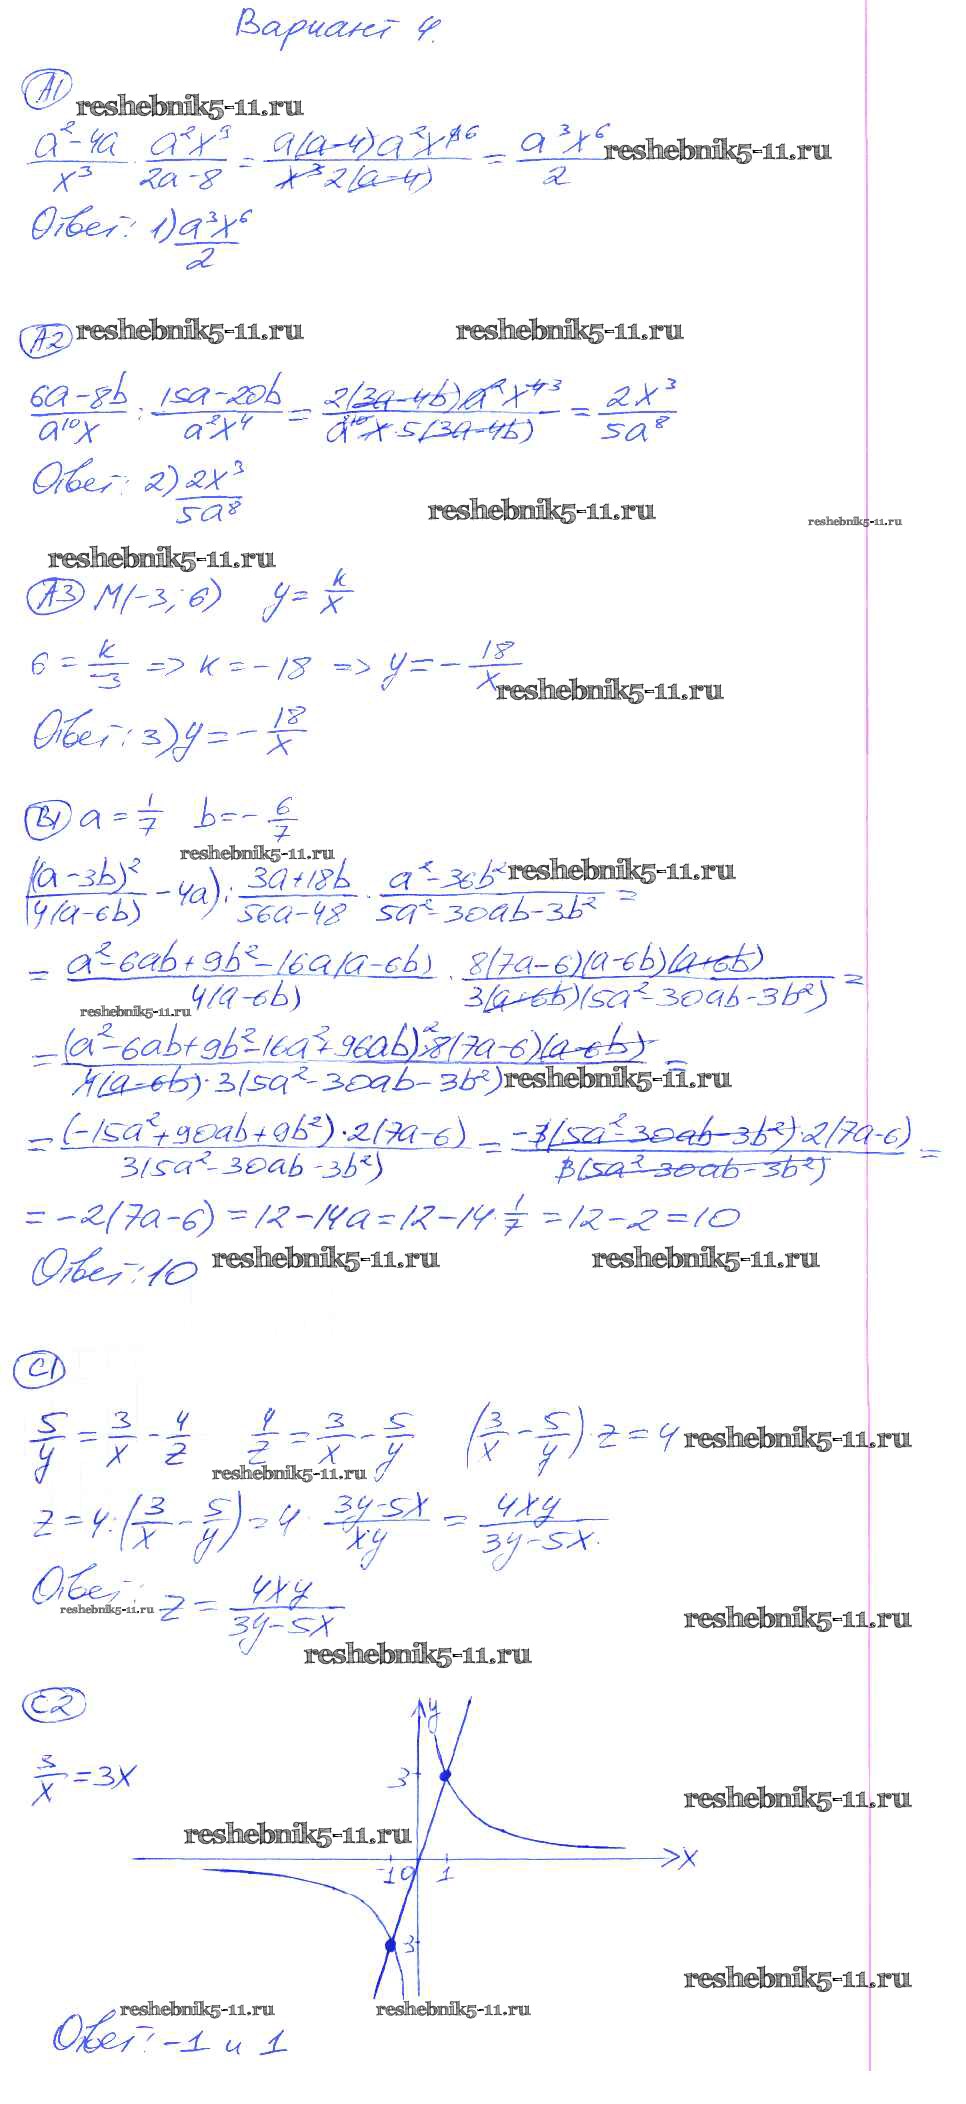 Вариант 4.
А1
reshebnik5-11.ru
(a²-4a)/x³ · (a²x⁹)/(2a-8) = (a(a-4)a²x⁹ ⁶)/(x³2(a-4)) = (a³x⁶)/2 reshebnik5-11.ru
Ответ: 1) (a³x⁶)/2
А2 reshebnik5-11.ru reshebnik5-11.ru
(6a-8b)/(a¹⁰x) : (15a-20b)/(a²x⁴) = (2(3a-4b)a²x⁴ ³)/(a¹⁰x·5(3a-4b)) = (2x³)/(5a⁸)
Ответ: 2) (2x³)/(5a⁸)
reshebnik5-11.ru reshebnik5-11.ru
reshebnik5-11.ru
А3 М(-3; 6) y = k/x
6 = k/-3 => k = -18 => y = - 18/x
reshebnik5-11.ru
Ответ: 3) y = - 18/x
В1 a = 1/7 b = - 6/7
reshebnik5-11.ru
((a-3b)²/(4(a-6b)) - 4a) : (3a+18b)/(56a-48) · (a²-36b²)/(5a²-30ab-3b²) = reshebnik5-11.ru
= (a²-6ab+9b²-16a(a-6b))/(4(a-6b)) · (8(7a-6)(a-6b)(a+6b))/(3(a+6b)(5a²-30ab-3b²)) =
reshebnik5-11.ru
= ((a²-6ab+9b²-16a²+96ab)·²8(7a-6)(a-6b))/(4(a-6b)·3(5a²-30ab-3b²)) = reshebnik5-11.ru
= ((-15a²+90ab+9b²)·2(7a-6))/(3(5a²-30ab-3b²)) = (-3(5a²-30ab-3b²)·2(7a-6))/(3(5a²-30ab-3b²)) =
= -2(7a-6) = 12-14a = 12-14·1/7 = 12-2 = 10
Ответ: 10 reshebnik5-11.ru reshebnik5-11.ru
С1
5/y = 3/x - 4/z 4/z = 3/x - 5/y (3/x - 5/y)·z = 4 reshebnik5-11.ru
reshebnik5-11.ru
z = 4 : (3/x - 5/y) = 4 · (3y-5x)/(xy) = (4xy)/(3y-5x).
Ответ: z = (4xy)/(3y-5x)
reshebnik5-11.ru reshebnik5-11.ru
reshebnik5-11.ru
С2
y
3/x = 3x
3
reshebnik5-11.ru
reshebnik5-11.ru
-1 0 1 x
3
reshebnik5-11.ru
reshebnik5-11.ru reshebnik5-11.ru
Ответ: -1 и 1